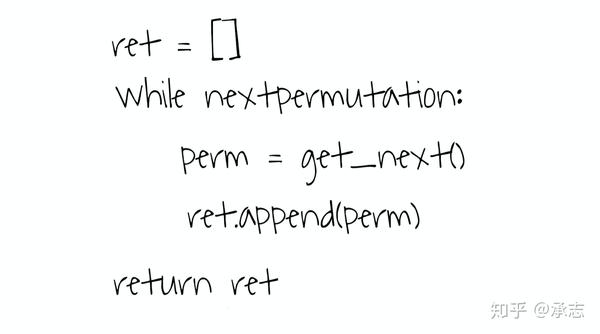 ret = []
While nextpermutation:
perm = get_next()
ret.append(perm)
return ret
知乎 @承志